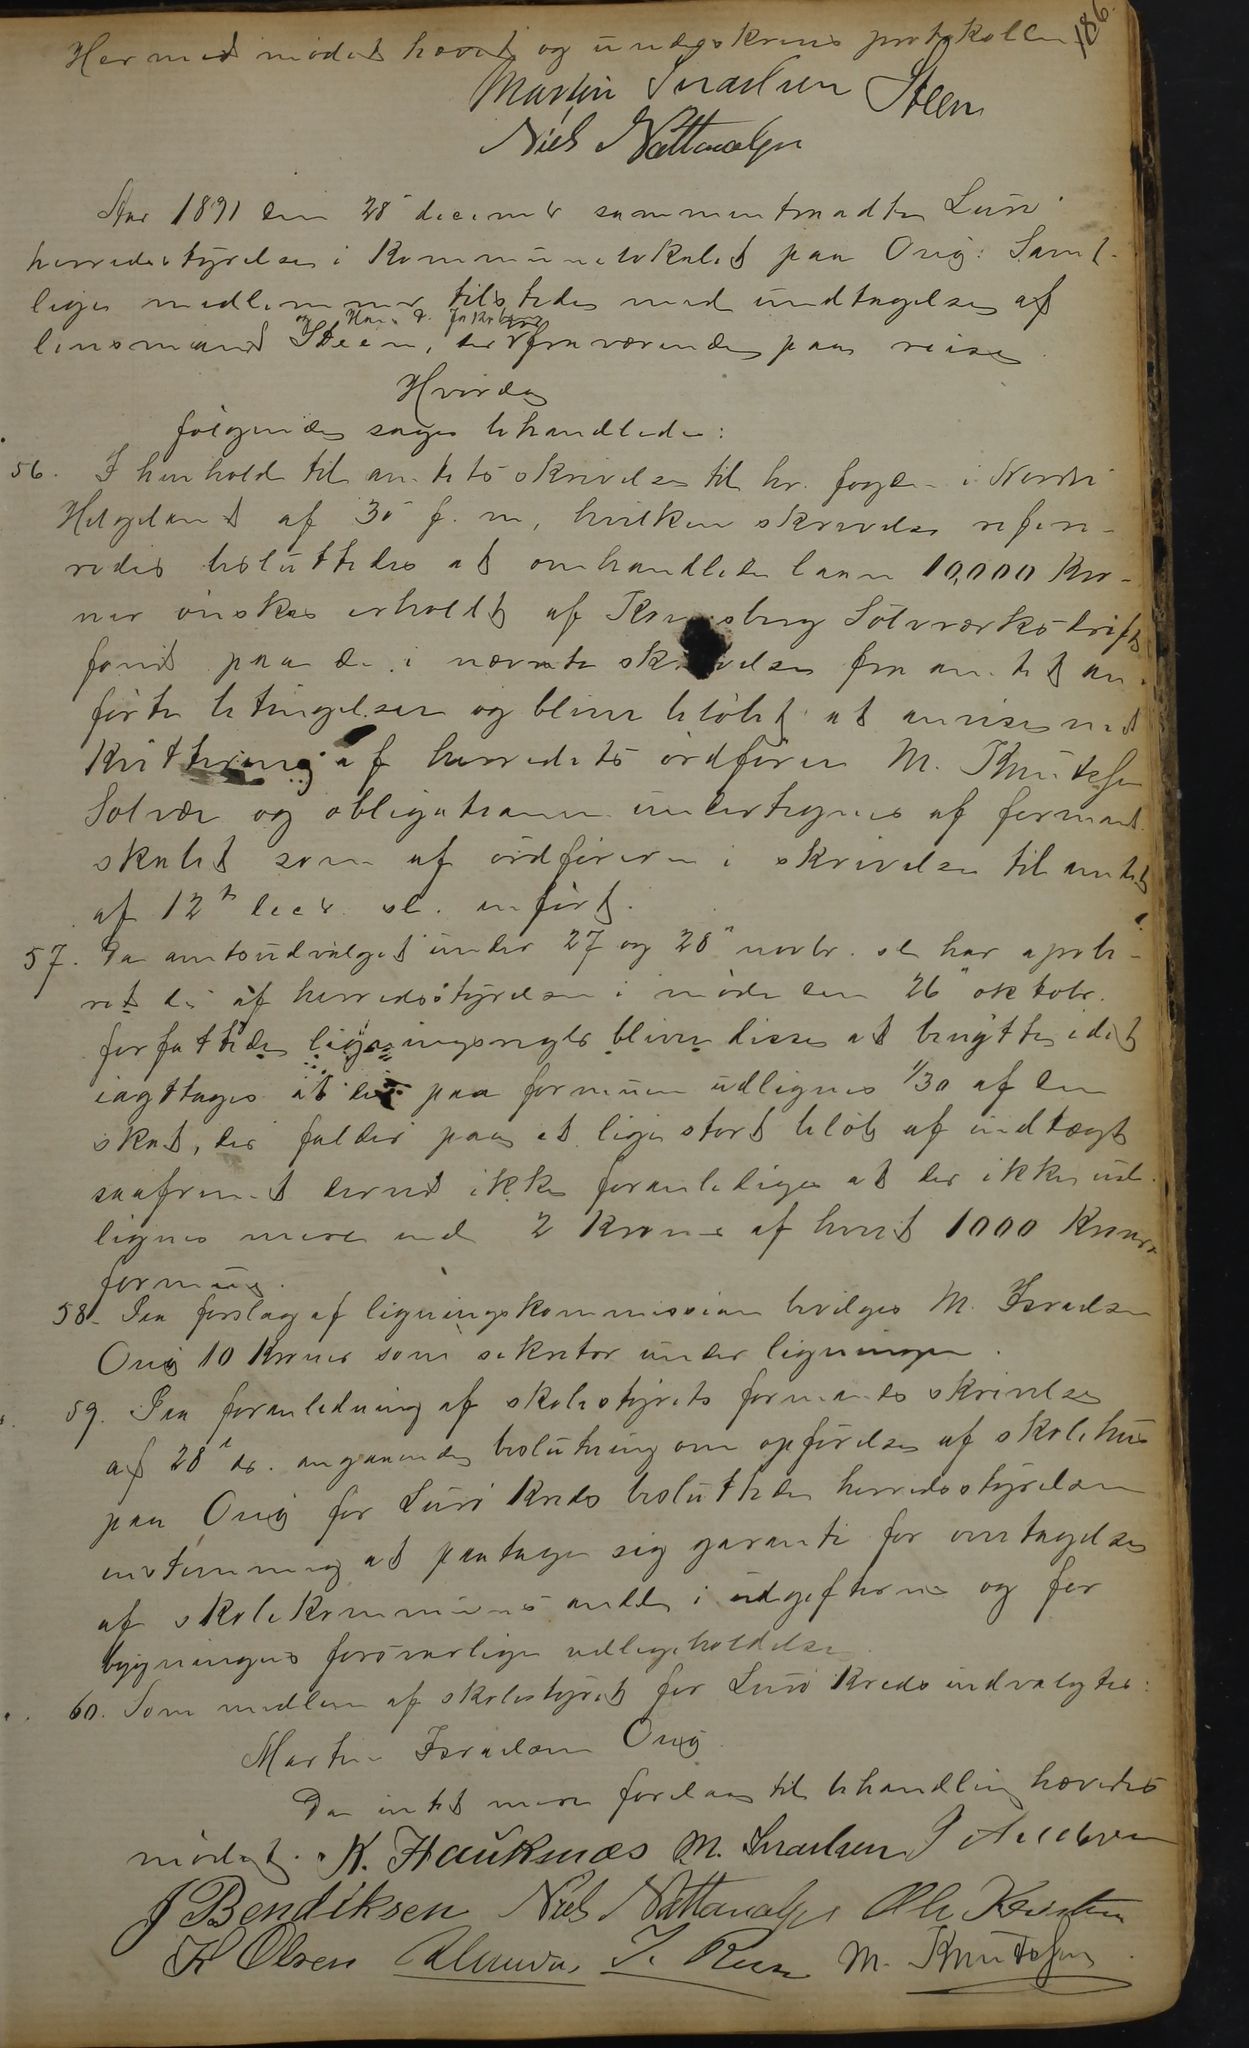 186.
Hermed mødet hævet og underskrives protokollen
Martin Israelsen Steen
Niels Nattanalsen
Aar 1891 den 28 decemr sammentraadte Lurø
herredsstyrelse i Kommunelokalet paa Onø: Samt-
lige medlemmer tilstede med undtagelse af
og Hans A. Jakobsen
lensmand Steen, der er fraværende paa reise
Hvorda
følgende sager behandledes:
56. I henhold til amtets skrivelse til hr. fogden i Nordre
Helgeland af 30 f. m, hvilken skrivelse refere-
redes besluttedes at omhandlede laan 10,000 Kro-
ner ønskes erholdt af Kongsberg Sølvværks drifts
fond paa de i nævnte skrivelse fra amtet an-
førte betingelser og bliver beløbet at anvise mod
Kvittering af herredets ordfører M. Knutsen
Solvær og obligationen undertegnes af formand-
skabet som af ordføreren i skrivelse til amtet
af 12te decbr. sl. anført.
57. Da amtsudvalget under 27 og 28" novbr. sl har approbe-
ret de af herredsstyrelsen i møde den 26" oktobr.
forfattede ligningsregler bliver disse at benytte idet
iagttages at der paa formuen udlignes 1/30 af den
skat, der falder paa et lige stort beløb af indtægt
saafremt derved ikke foranlediges at der ikke ud-
lignes mere end 2 Kroner af hvert 1000 Kroners
formue.
58. Paa forslag af ligningskommissionen bevilges M. Israelsen
Onø 10 Kroner som sekretær under ligningen.
59. Paa foranledning af skolestyrets formands skrivelse
af 28 ds. angaaende beslutning om opførelse af skolehus
paa Onø for Lurø Kreds besluttede herredsstyrelsen
enstemmig at paatage sig garanti for overtagelse
af skolekommunens andel i udgifterne og for
bygningens forsvarlige vedligeholdelse.
60. Som medlem af skolestyret for Lurø Kreds indvalgtes:
Martin Israelsen Onø.
Da intet mere forelaa til behandling hævedes
mødet. K. Hauknæs M. Israelsen
J Bendiksen Niels Nattanalsen Ole
H Olsen M. Knutsen